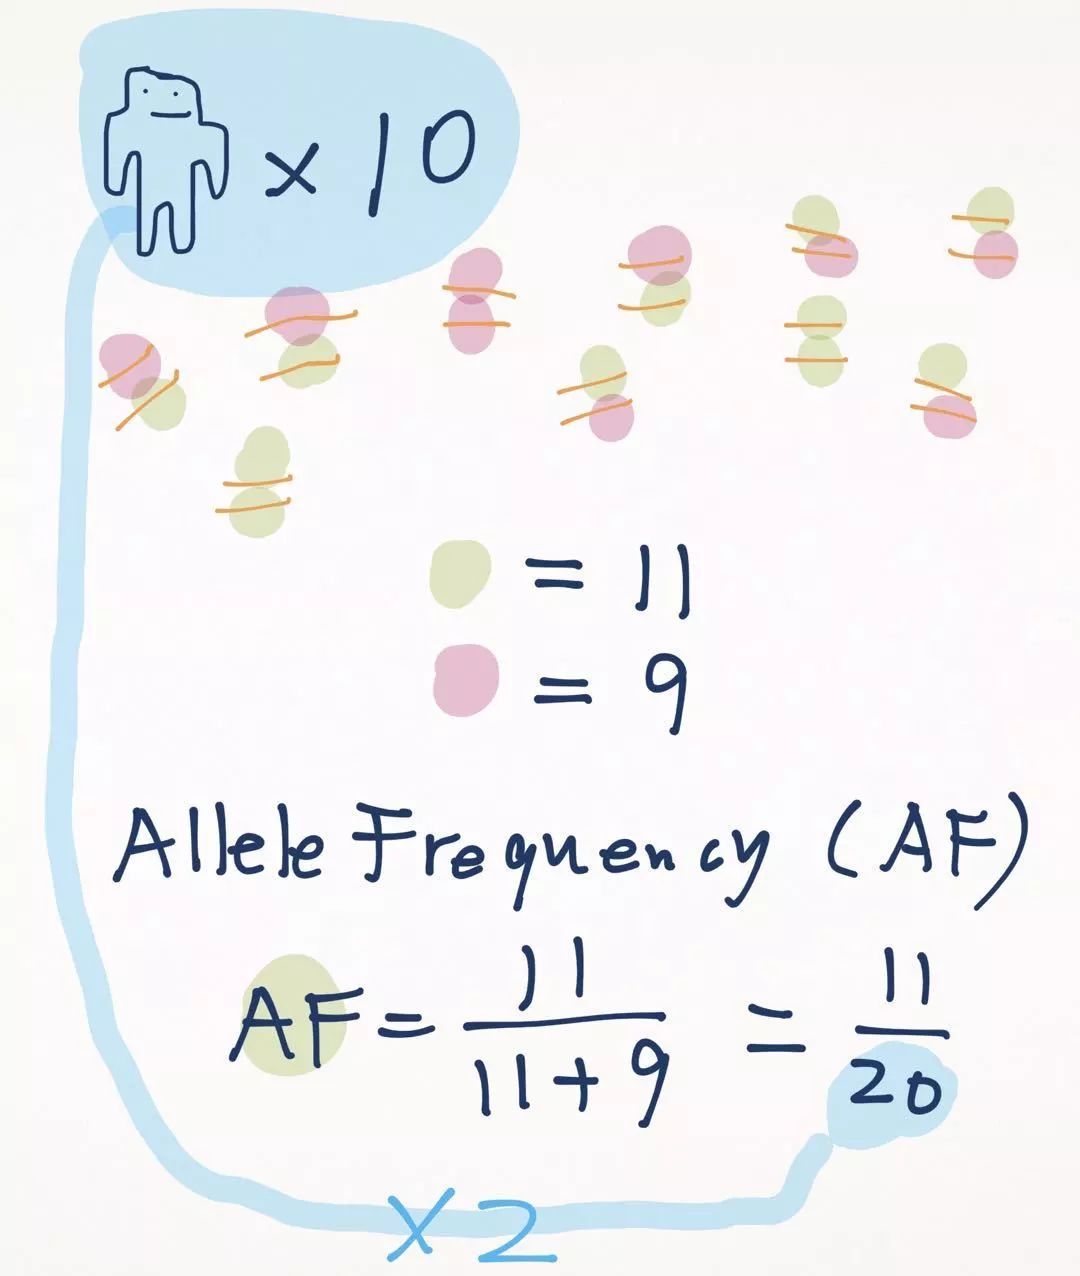 × 10
= 11
= 9
Allele Frequency (AF)
AF = 11/11+9 = 11/20
×2